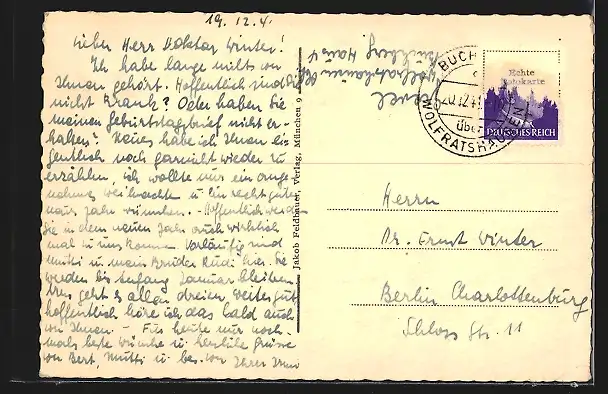 19. 12. 41
Lieber Herr Doktor Winter!
Ich habe lange nicht von
Ihnen gehört. Hoffentlich sind Sie
nicht krank? Oder haben Sie
meinen Geburtstagsbrief nicht er-
halten? Neues habe ich Ihnen ei-
gentlich noch garnicht wieder zu
erzählen, ich wollte nur ein ange-
nehmes Weihnachten u. ein recht gutes
neues Jahr wünschen. - Hoffentlich werden
Sie in dem neuen Jahr auch wirklich
mal zu uns kommen. Vorläufig sind
Mutti u. mein Bruder Rudi hier. Sie
werden bis Anfang Januar bleiben.
Uns geht es allen dreien weiter gut
hoffentlich höre ich das bald auch
von Ihnen - Für heute nur noch-
mals beste Wünsche u. herzliche Grüsse
von Bert, Mutti u. bes. von Ihrer
Jakob Feldbauer, Verlag, München 9
Wolfratshausen
Buchberg Haus 4
BUCH
20.12.41
über
WOLFRATSHAUSEN
Echte
Fotokarte
DEUTSCHES REICH
Herrn
Dr. Ernst Winter
Berlin Charlottenburg
Schloss Str. 11